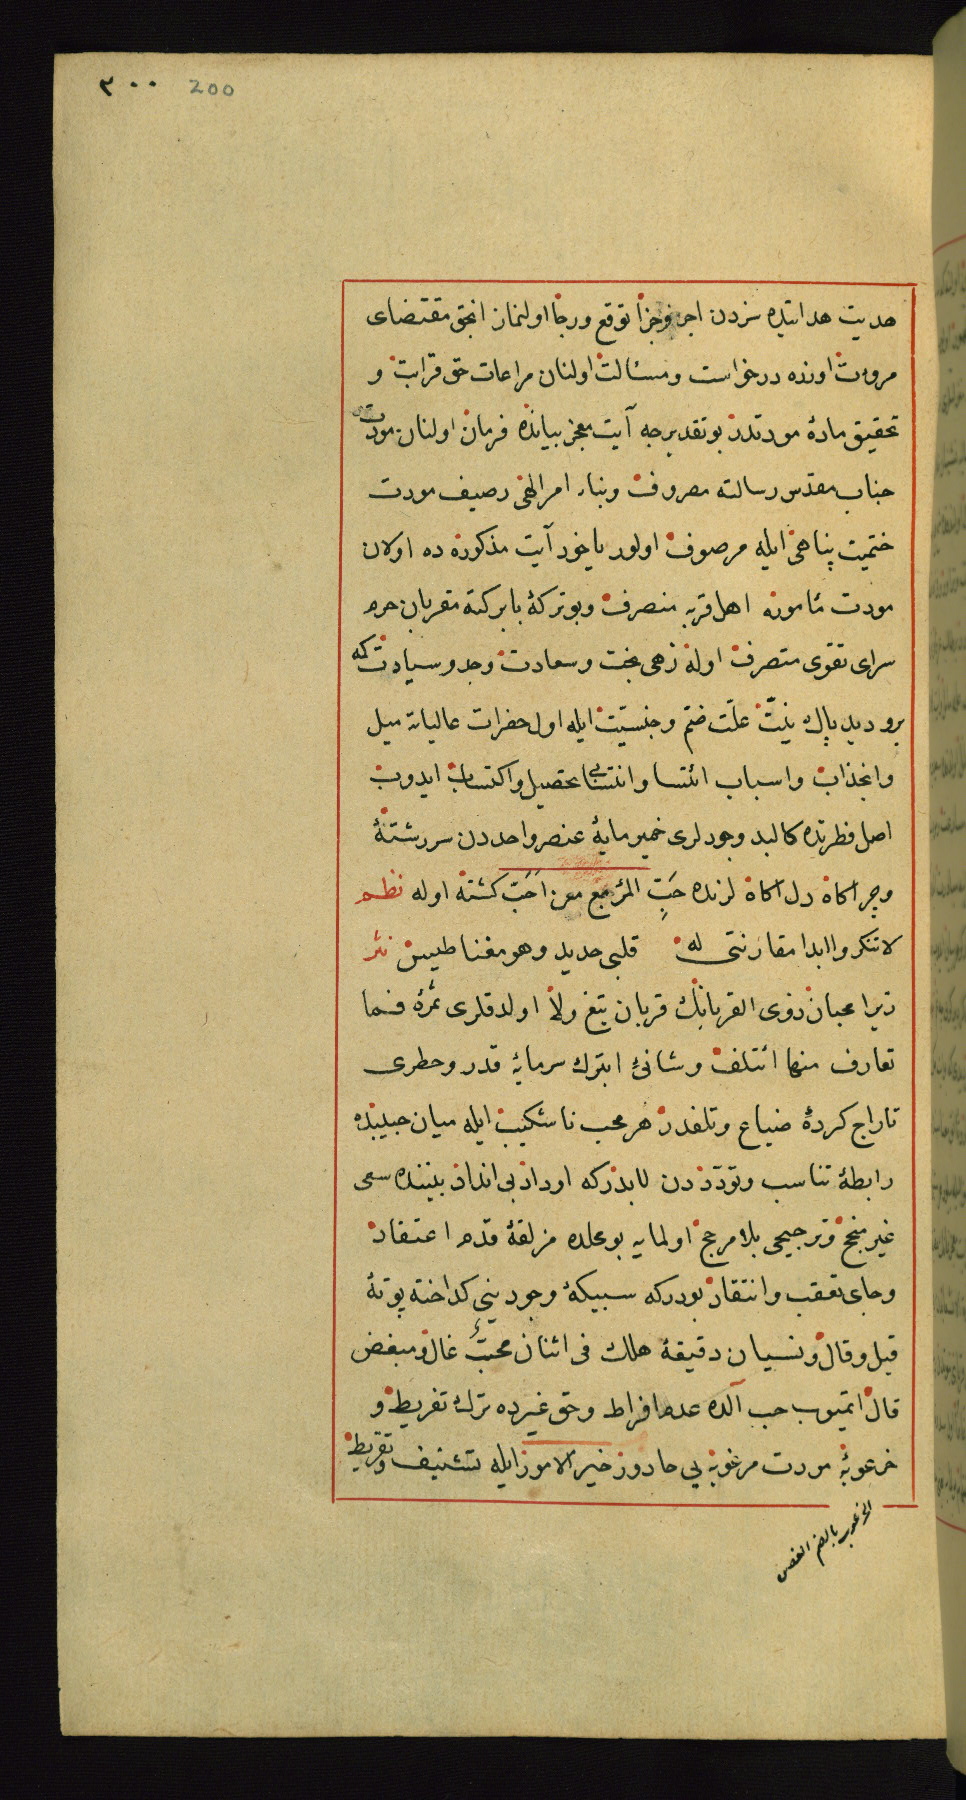 ٢٠٠ 200
هدیت هدایتده سزدن اجر و جزا توقع و رجا اولنماز انجق مقتضای
مروءت اوزره درخواست و مسئالت اولنان مراعات حق قرابت و
تحقیق مادهٔ مودتدر بو تقدیرجه آیت معجز بیانده فرمان اولنان مودت
جناب مقدس رسالته مصروف و بناء امر الهی رصیف مودت
ختمیت پناهی ایله مرصوف اولور یاخود آیت مذکوره ده اولان
مودت مأموره اهل قربه منصرف و بو ترکهٔ بابرکته مقربان حرم
سرای تقوی متصرف اوله زهی بخت و سعادت و جد و سیادت که
برو دید پاك نیت علت ضم و جنسیت ایله اول حضرات عالیاته میل
و انجذاب و اسباب ائتسا و انتسابی تحصیل و اکتساب ایدوب
اصل فطرتده کالبد وجودلری خمیر مایهٔ عنصر واحددن سررشتهٔ
دل آکاه لرنده حب المرء مع من احب کشته اوله نظم
لا تنکروا ابدا مقارنتی له قلبی حدید وهو مغناطیس نثر
زیرا محبان ذوی القربانك قربان تیغ ولا اولدقلری ثمرهٔ فما
تعارف منها ائتلف و شانیٔ ابترك سرمایهٔ قدر و خطری
تاراج کردهٔ ضیاع و تلفدر هر محب ناشکیب ایله میان حبیبنده
رابطهٔ تناسب و توددن لابددر که اوداد بی انداد بیننده سعی
غیر منجح و ترجیحی بلا مرجح اولمایه بو محلده مزلقهٔ قدم اعتقاد
و جای تعقب و انتقاد بودر که سبیکهٔ وجودینی کداختهٔ بوتهٔ
قیل و قال و نسیان دقیقهٔ هلك فی اثنان محب غال و مبغض
قال اتمیوب حب آلده عدم افراط و حق غیرده ترك تفریط و
خرعوبهٔ مودت مرغوبه یی خیر الامور ایله تشنیف و تقریط
الخرعوب بالضم الغصن